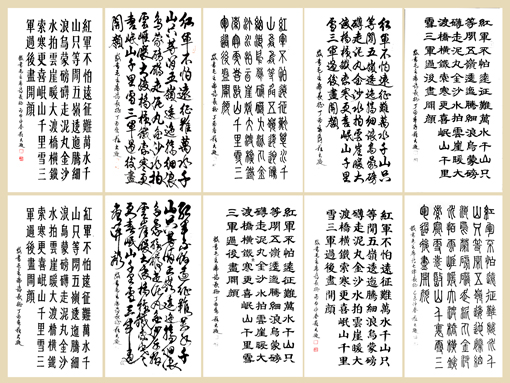 紅軍不怕遠征難萬水千
山只等閑五嶺逶迤騰細
浪烏蒙磅礴走泥丸金沙
水拍雲崖暖大渡橋橫鐵
索寒更喜岷山千里雪三
軍過後盡開顏
紅軍不怕遠征難萬水千
山只等閑五嶺逶迤騰細浪
烏蒙磅礴走泥丸金沙水拍
雲崖暖大渡橋橫鐵索寒更
喜岷山千里雪三軍過後盡
開顏
紅軍不怕遠征難萬水千
山只等閑五嶺逶迤騰細
浪烏蒙磅礴走泥丸金沙
水拍雲崖暖大渡橋橫鐵
索寒更喜岷山千里雪三
軍過後盡開顏
紅軍不怕遠征難萬水千山只
等閑五嶺逶迤騰細浪烏蒙磅
礴走泥丸金沙水拍雲崖暖大
渡橋橫鐵索寒更喜岷山千里
雪三軍過後盡開顏
紅軍不怕遠征難萬水千山只
等閑五嶺逶迤騰細浪烏蒙磅
礴走泥丸金沙水拍雲崖暖大
渡橋橫鐵索寒更喜岷山千里
雪三軍過後盡開顏
紅軍不怕遠征難萬水千
山只等閑五嶺逶迤騰細
浪烏蒙磅礴走泥丸金沙
水拍雲崖暖大渡橋橫鐵
索寒更喜岷山千里雪三
軍過後盡開顏
紅軍不怕遠征難萬水千
山只等閑五嶺逶迤騰細浪
烏蒙磅礴走泥丸金沙水拍
雲崖暖大渡橋橫鐵索寒更
喜岷山千里雪三軍過後
盡開顏
紅軍不怕遠征難萬水千山只
等閑五嶺逶迤騰細浪烏蒙磅
礴走泥丸金沙水拍雲崖暖大
渡橋橫鐵索寒更喜岷山千里
雪三軍過後盡開顏
紅軍不怕遠征難萬水千山只
等閑五嶺逶迤騰細浪烏蒙磅
礴走泥丸金沙水拍雲崖暖大
渡橋橫鐵索寒更喜岷山千里
雪三軍過後盡開顏
紅軍不怕遠征難萬水千
山只等閑五嶺逶迤騰細
浪烏蒙磅礴走泥丸金沙
水拍雲崖暖大渡橋橫鐵
索寒更喜岷山千里雪三
軍過後盡開顏